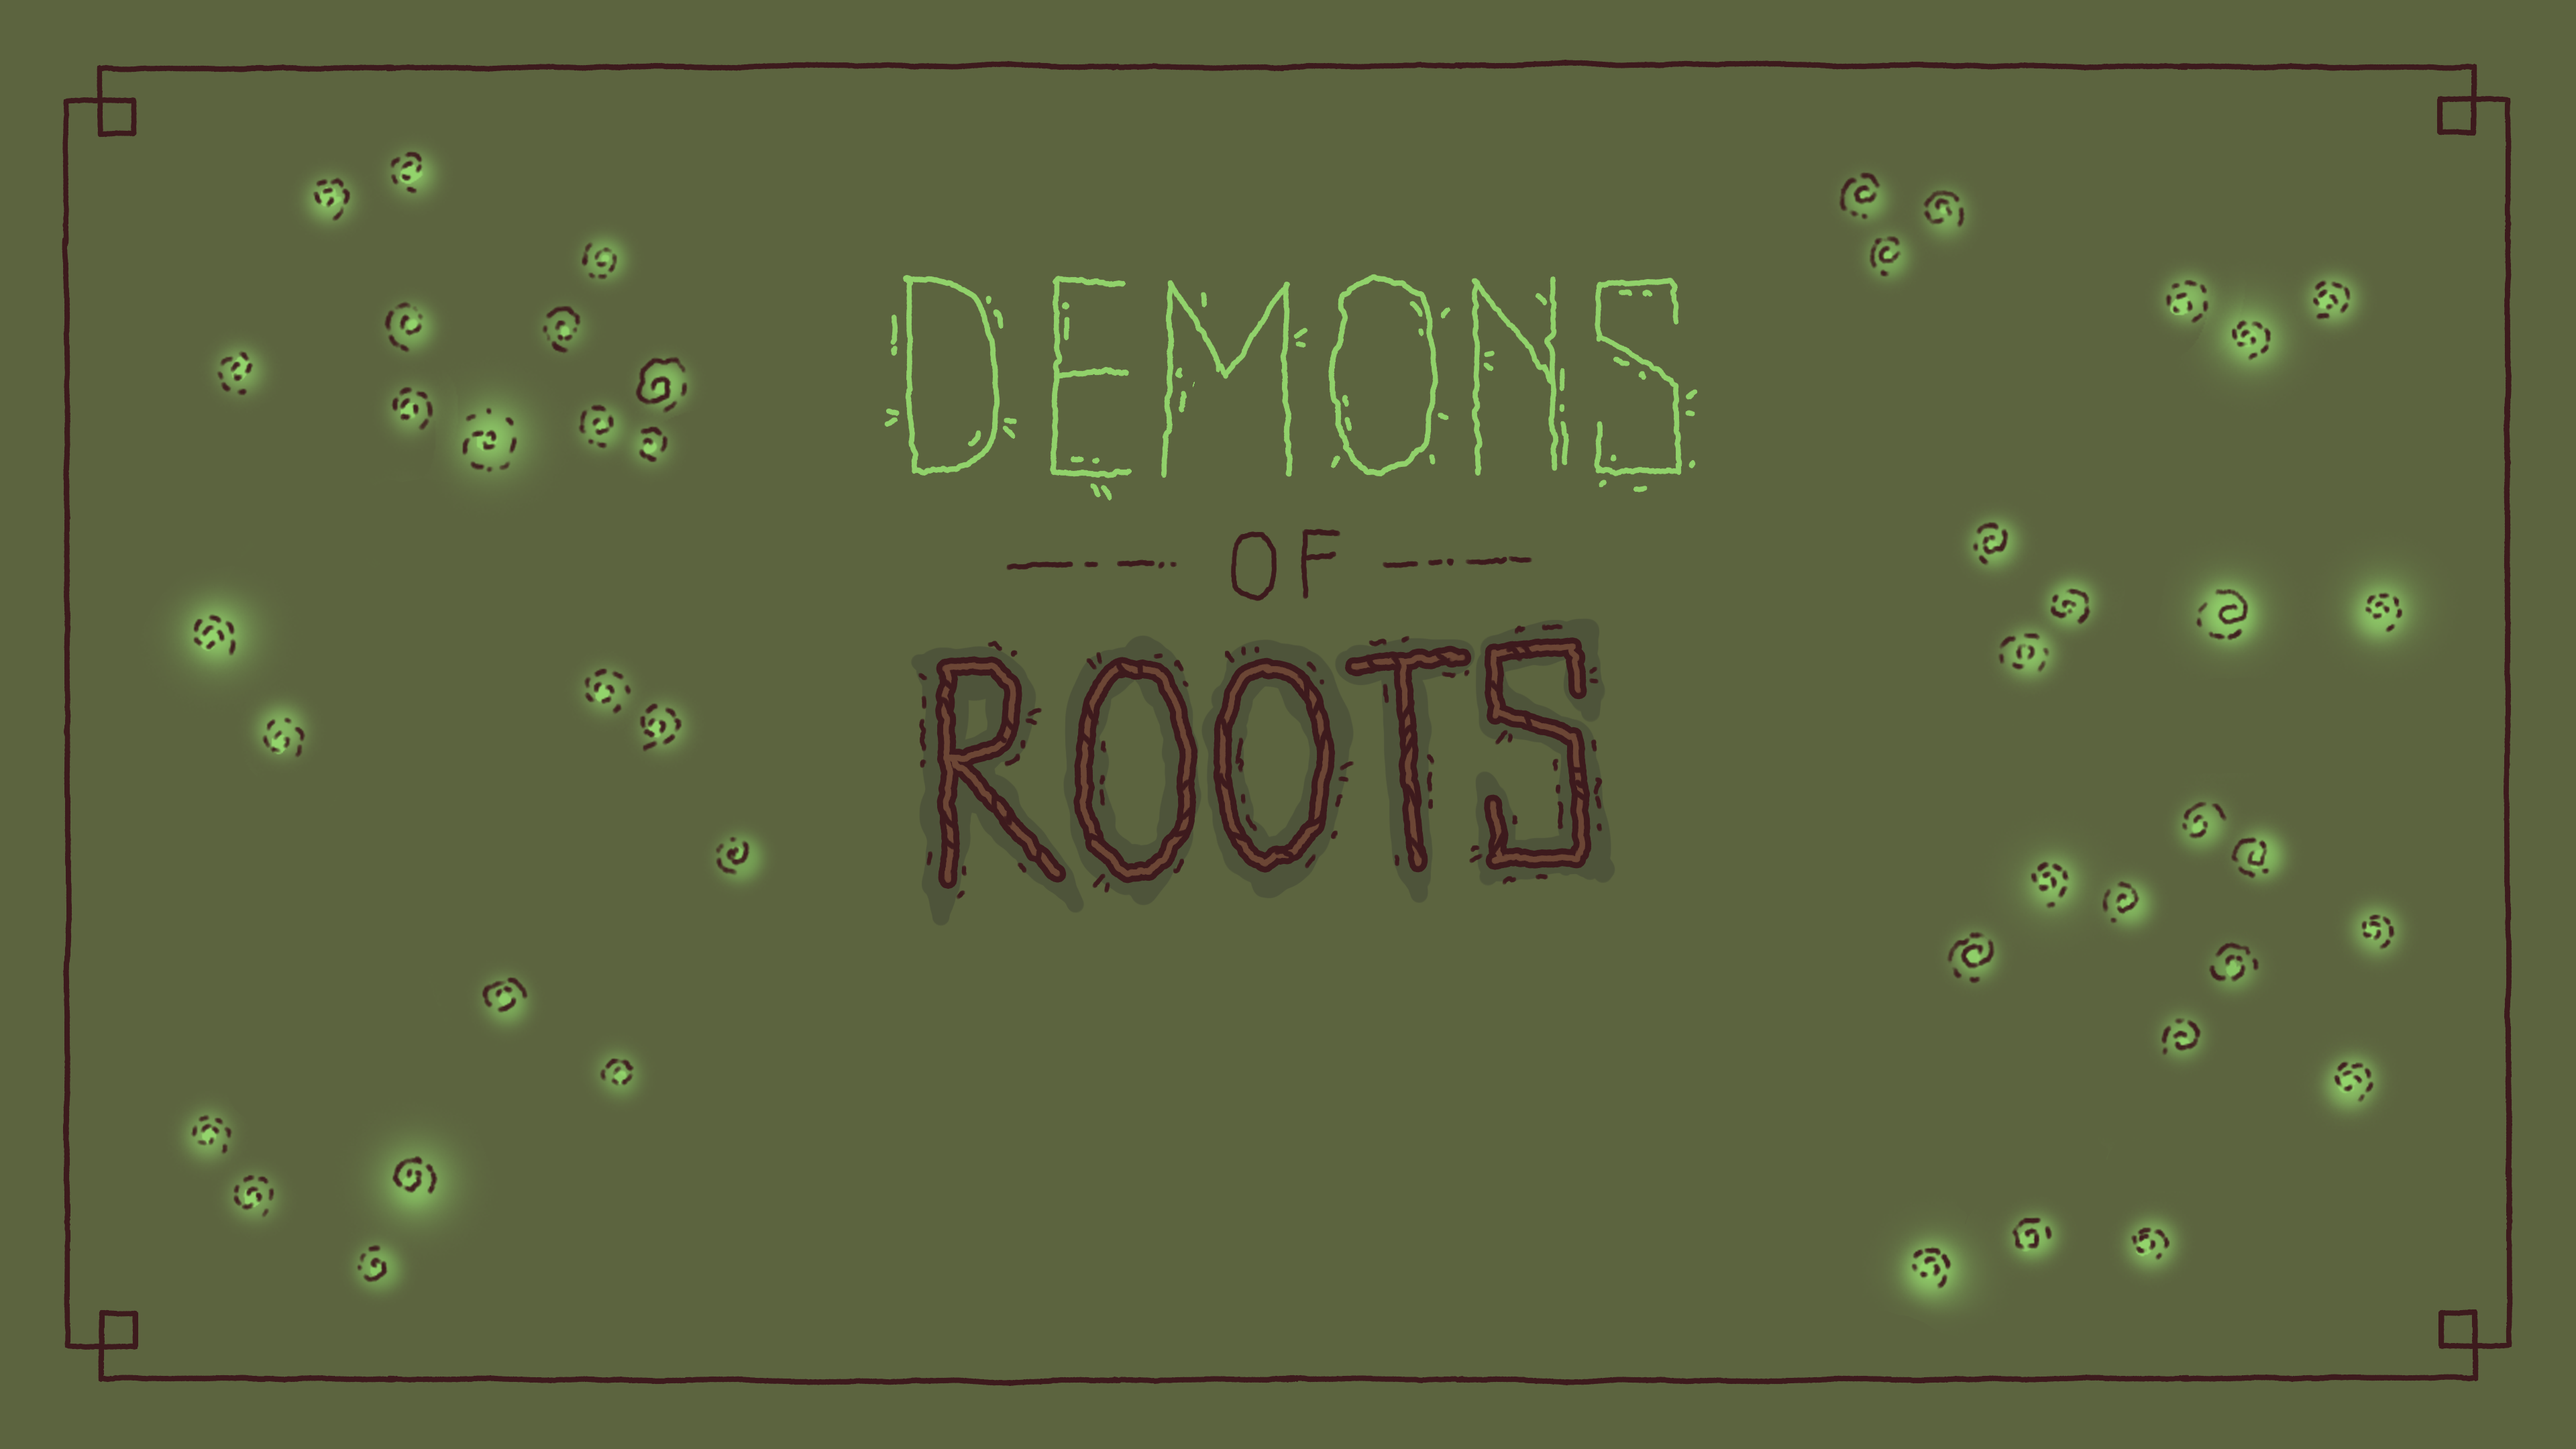 DEMONS
OF
ROOTS